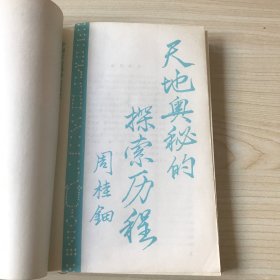 天地奥秘的
探索历程
周桂钿